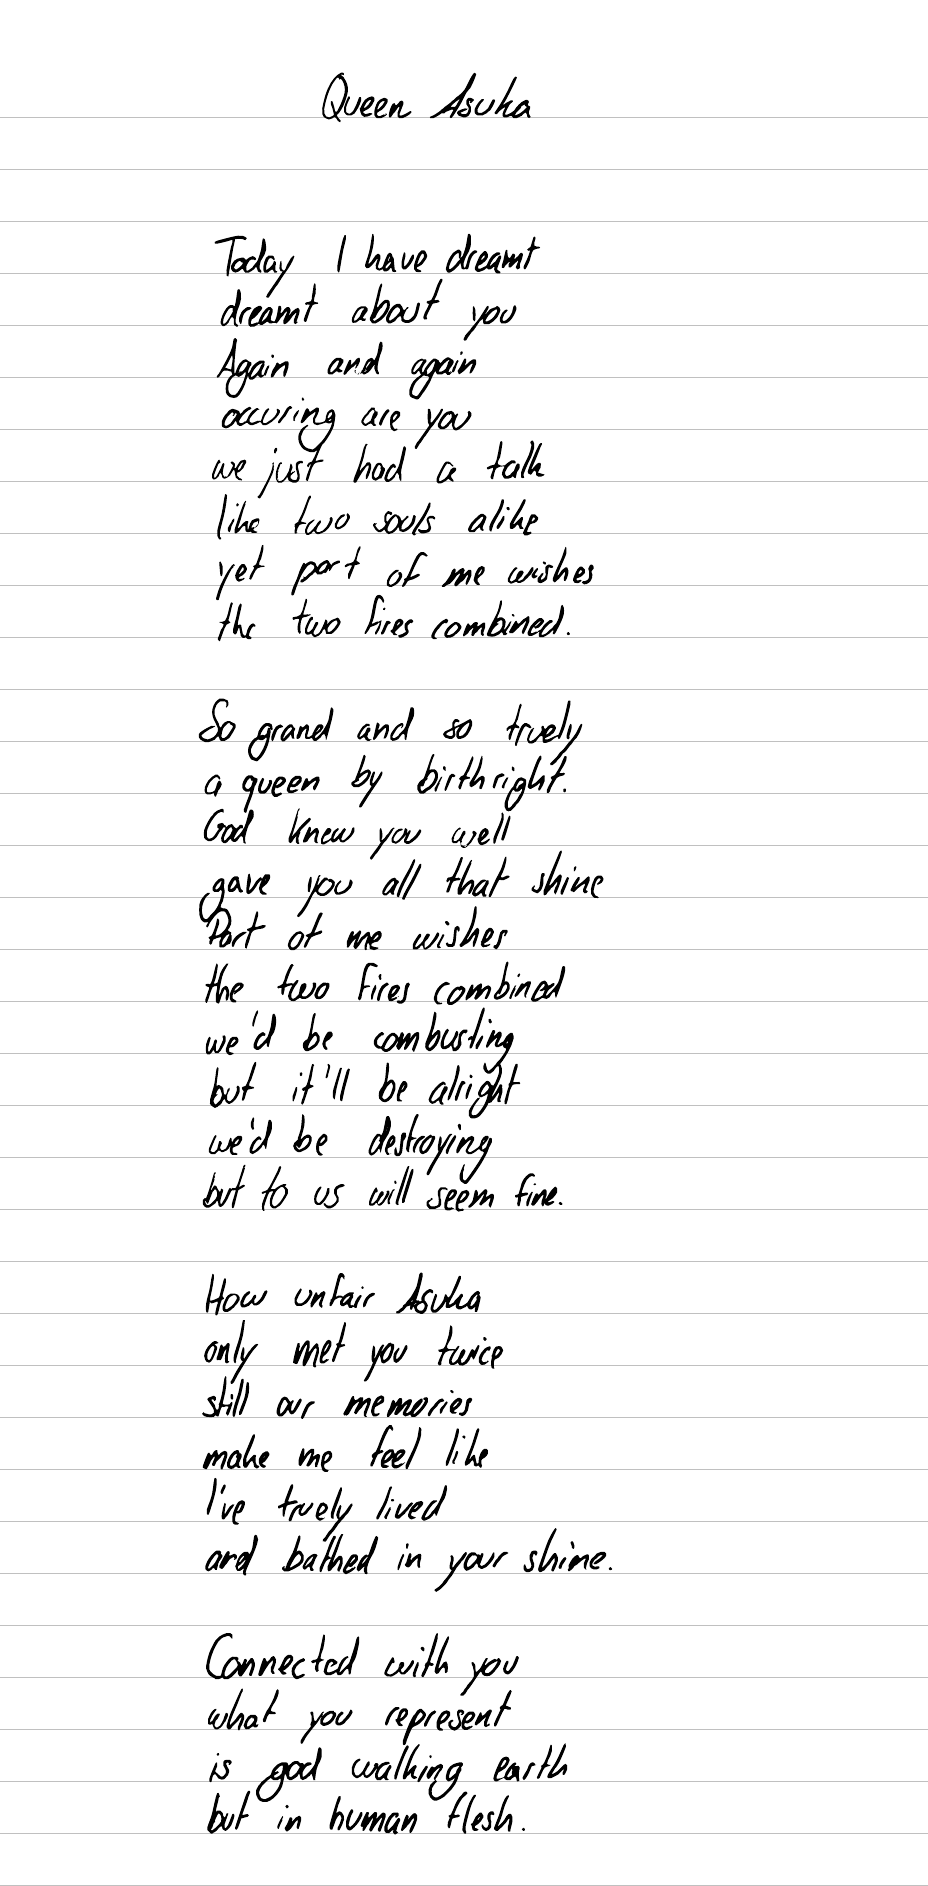 Queen Asuka
Today I have dreamt
dreamt about you
Again and again
occuring are you
we just had a talk
like two souls alike
yet part of me wishes
the two fires combined.
So grand and so truely
a queen by birthright.
God knew you well
gave you all that shine
Part of me wishes
the two fires combined
we'd be combusting
but it'll be alright
we'd be destroying
but to us will seem fine.
How unfair Asuka
only met you twice
still our memories
make me feel like
I've truely lived
and bathed in your shine.
Connected with you
what you represent
is god walking earth
but in human flesh.